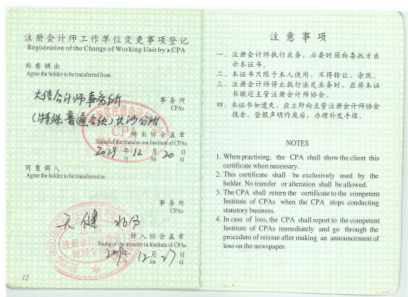 注册会计师工作单位变更事项登记
Registration of the Change of Working Unit by a CPA
同意调出
Agree the holder to be transferred from
大信会计师事务所
(特殊普通合伙)长沙分所
事务所
CPAs
转出协会盖章
Stamp of the transfer-out Institute of CPAs
12月20日
同意调入
Agree the holder to be transferred to
天健
事务所
CPAs
转入协会盖章
Stamp of the transfer-in Institute of CPAs
12月27日
12
注意事项
一、注册会计师执行业务，必要时须向委托方出示本证书。
二、本证书只限于本人使用，不得转让、涂改。
三、注册会计师停止执行法定业务时，应将本证书缴还主管注册会计师协会。
四、本证书如遗失，应立即向主管注册会计师协会报告，登报声明作废后，办理补发手续。
NOTES
1. When practising, the CPA shall show the client this
certificate when necessary.
2. This certificate shall be exclusively used by the
holder. No transfer or alteration shall be allowed.
3. The CPA shall return the certificate to the competent
Institute of CPAs when the CPA stops conducting
statutory business.
4. In case of loss, the CPA shall report to the competent
Institute of CPAs immediately and go through the
procedure of reissue after making an announcement of
loss on the newspaper.